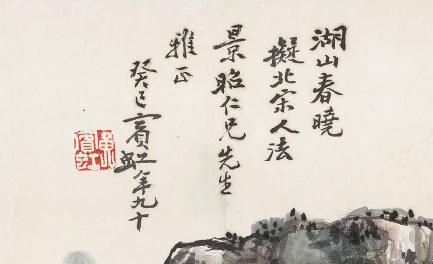 湖山春曉
擬北宋人法
景昭仁兄先生
雅正
癸巳賓虹年九十
黃賓虹